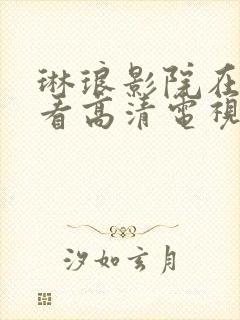 琳琅影院在
看高清電視
汐如玄月